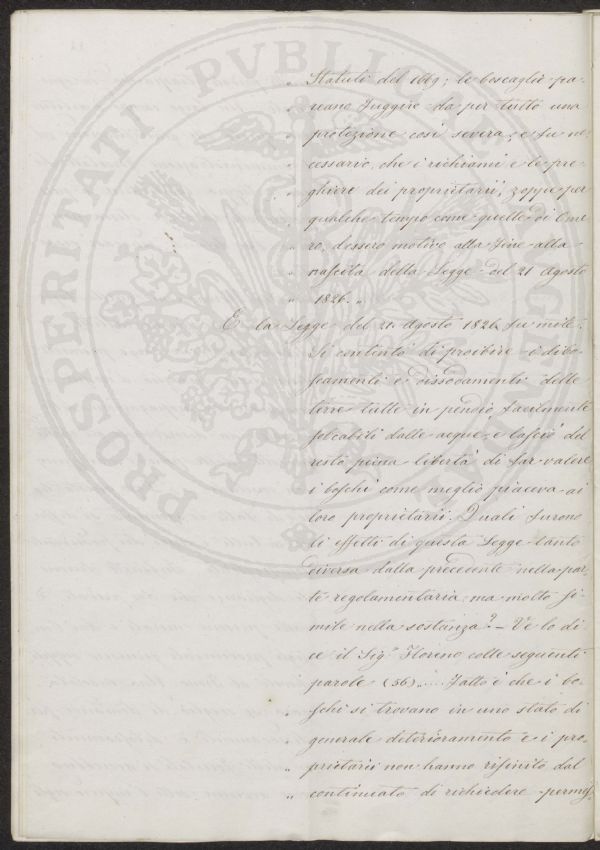 „ Statuti del 1819; le boscaglie pa-
„ reano fuggire da per tutto una
„ protezione così severa; e fu ne-
„ cessario, che i richiami e le pre-
„ ghiere dei proprietarii, zoppe per
„ qualche tempo come quelle di Ome-
„ ro, dessero motivo alla fine alla
„ nascita della Legge del 21 Agosto
„ 1826. „
E la Legge del 21 Agosto 1826 fu mite.
Si contentò di proibire i dibo-
scamenti e dissodamenti delle
terre tutte in pendio facilmente
solcabili dalle acque, e lasciò del
resto piena libertà di far valere
i boschi come meglio piaceva ai
loro proprietarii. Quali furono
li effetti di questa Legge tanto
diversa dalla precedente nella par-
te regolamentaria ma molto si-
mile nella sostanza? – Ve lo di-
ce il Sigr Floreno colle seguenti
parole (56) „.... Fatto è che i bo-
„ schi si trovano in uno stato di
„ generale deterioramento e i pro-
„ prietarii non hanno rifinito dal
„ continuato di richiedere permes-
PROSPERITATI PVBLICAE